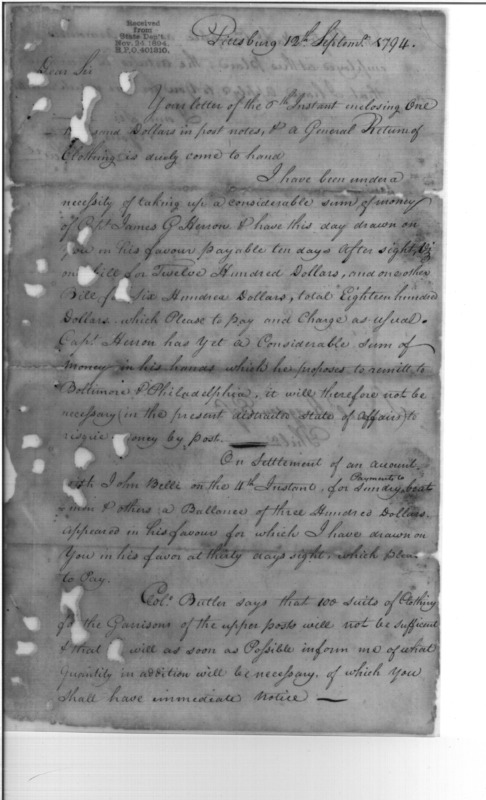 Received
from
State Dep't.
Nov. 24. 1894.
R.P.O. 401810.
Pittsburg 12th Septemr. 1794.
Dear Sir
Your letter of the 5th Instant inclosing One
Dollars in post notes, & a General Return of
Clothing is duely come to hand
I have been under a
necessity of taking up a considerable sum of money
of Capt. James G Herron & have this day drawn on
you in his favour payable ten days After sight, Viz
one bill for Twelve Hundred Dollars, and one other
Bill for Six Hundred Dollars, total Eighteen hundred
Dollars. which Please to pay and Charge as usual.
Capt. Herron has Yet a Considerable sum of
money in his hands which he proposes to remitt, to
Boltimore & Philadelphia, it will therefore not be
necessary (in the present distracted state of Affairs) to
risque money by post.
On Settlement of an account
with John Bells on the 4th Instant, for Payments to Sundry boat
men & others a Ballance of three Hundred Dollars
appeared in his favour for which I have drawn on
You in his favor at thirty days sight, which Please
to Pay.
Colo. Butler says that 100 suits of Clothing
for the Garrisons of the upper posts will not be sufficient
& that will as soon as Possible inform me of what
Quantity in addition will be necessary, of which You
Shall have immediate Notice —